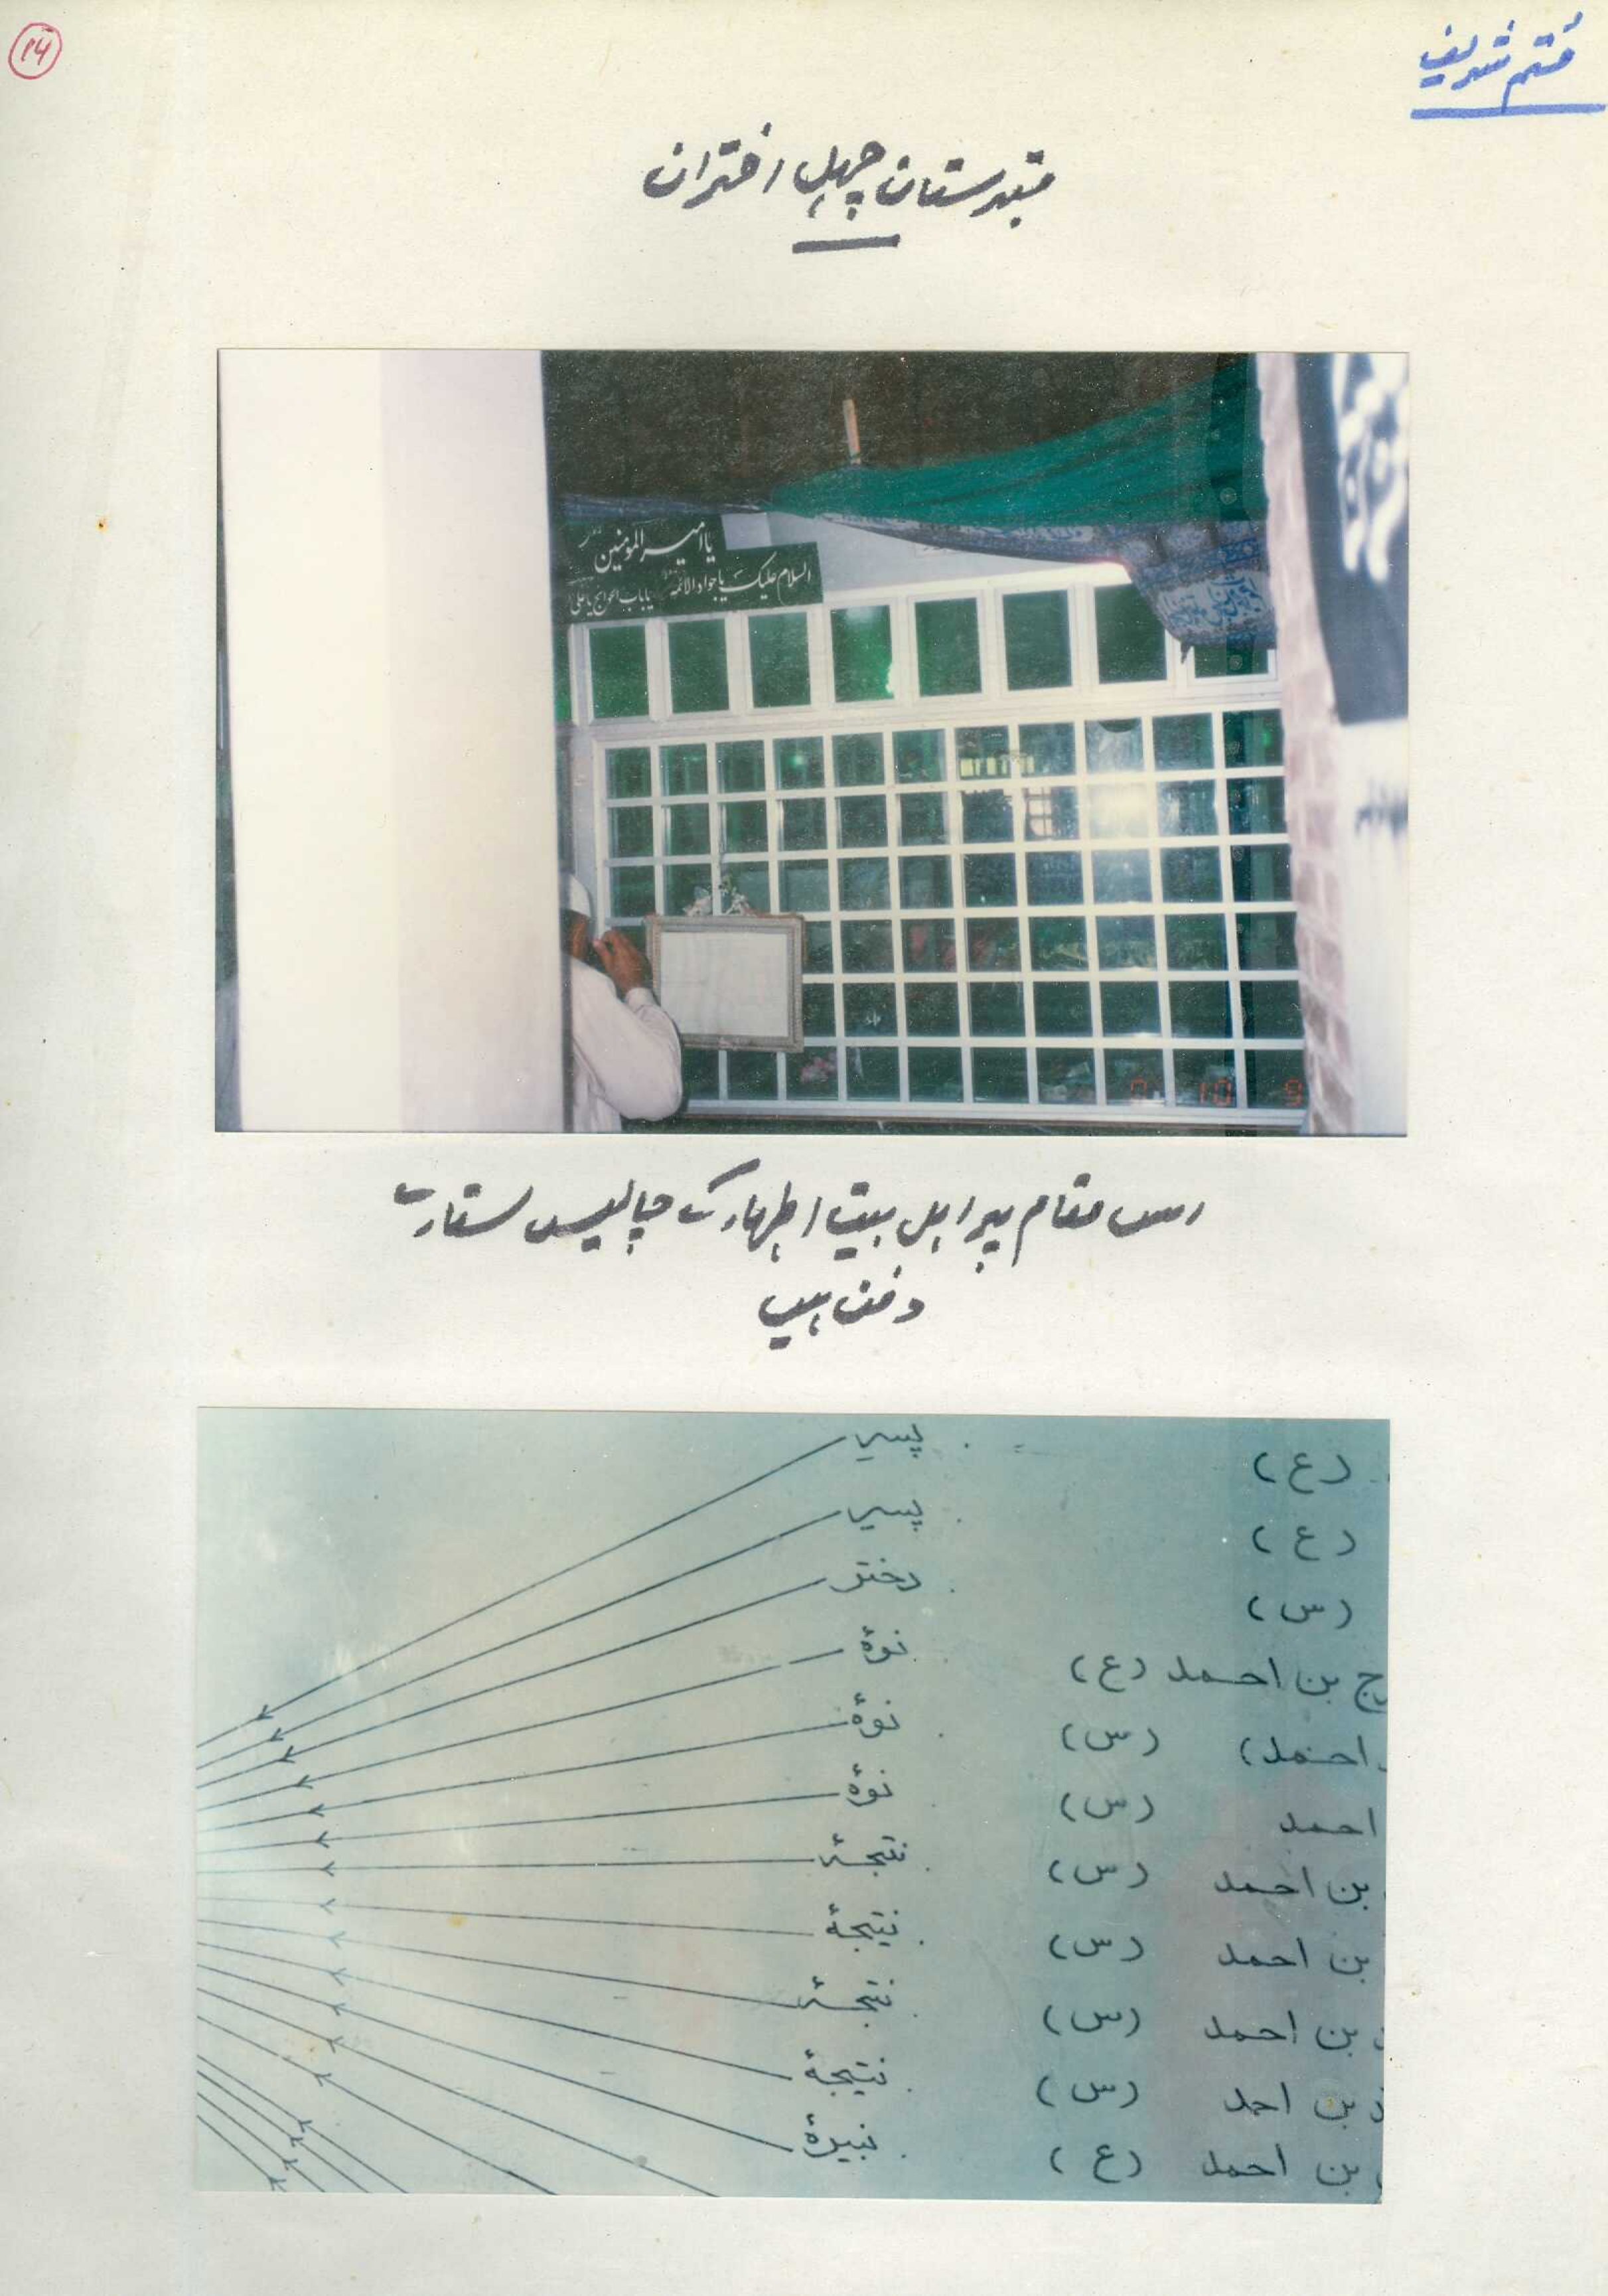 ۱۴
قُم شریف
قبرستان چہل اختران
یا امیر المومنین
السلام علیک یا جواد الائمه یا باب الحوائج یا علی
اس مقام پر اہل بیت اطہار کے چالیس ستارے
دفن ہیں
(ع) پسر
(ع) پسر
(س) دختر
ج بن احمد (ع) نوهٔ
احمد) (س) نوهٔ
احمد (س) نوهٔ
بن احمد (س) نتیجهٔ
بن احمد (س) نتیجهٔ
بن احمد (س) نتیجهٔ
بن احمد (س) نتیجهٔ
بن احمد (ع) نبیرهٔ